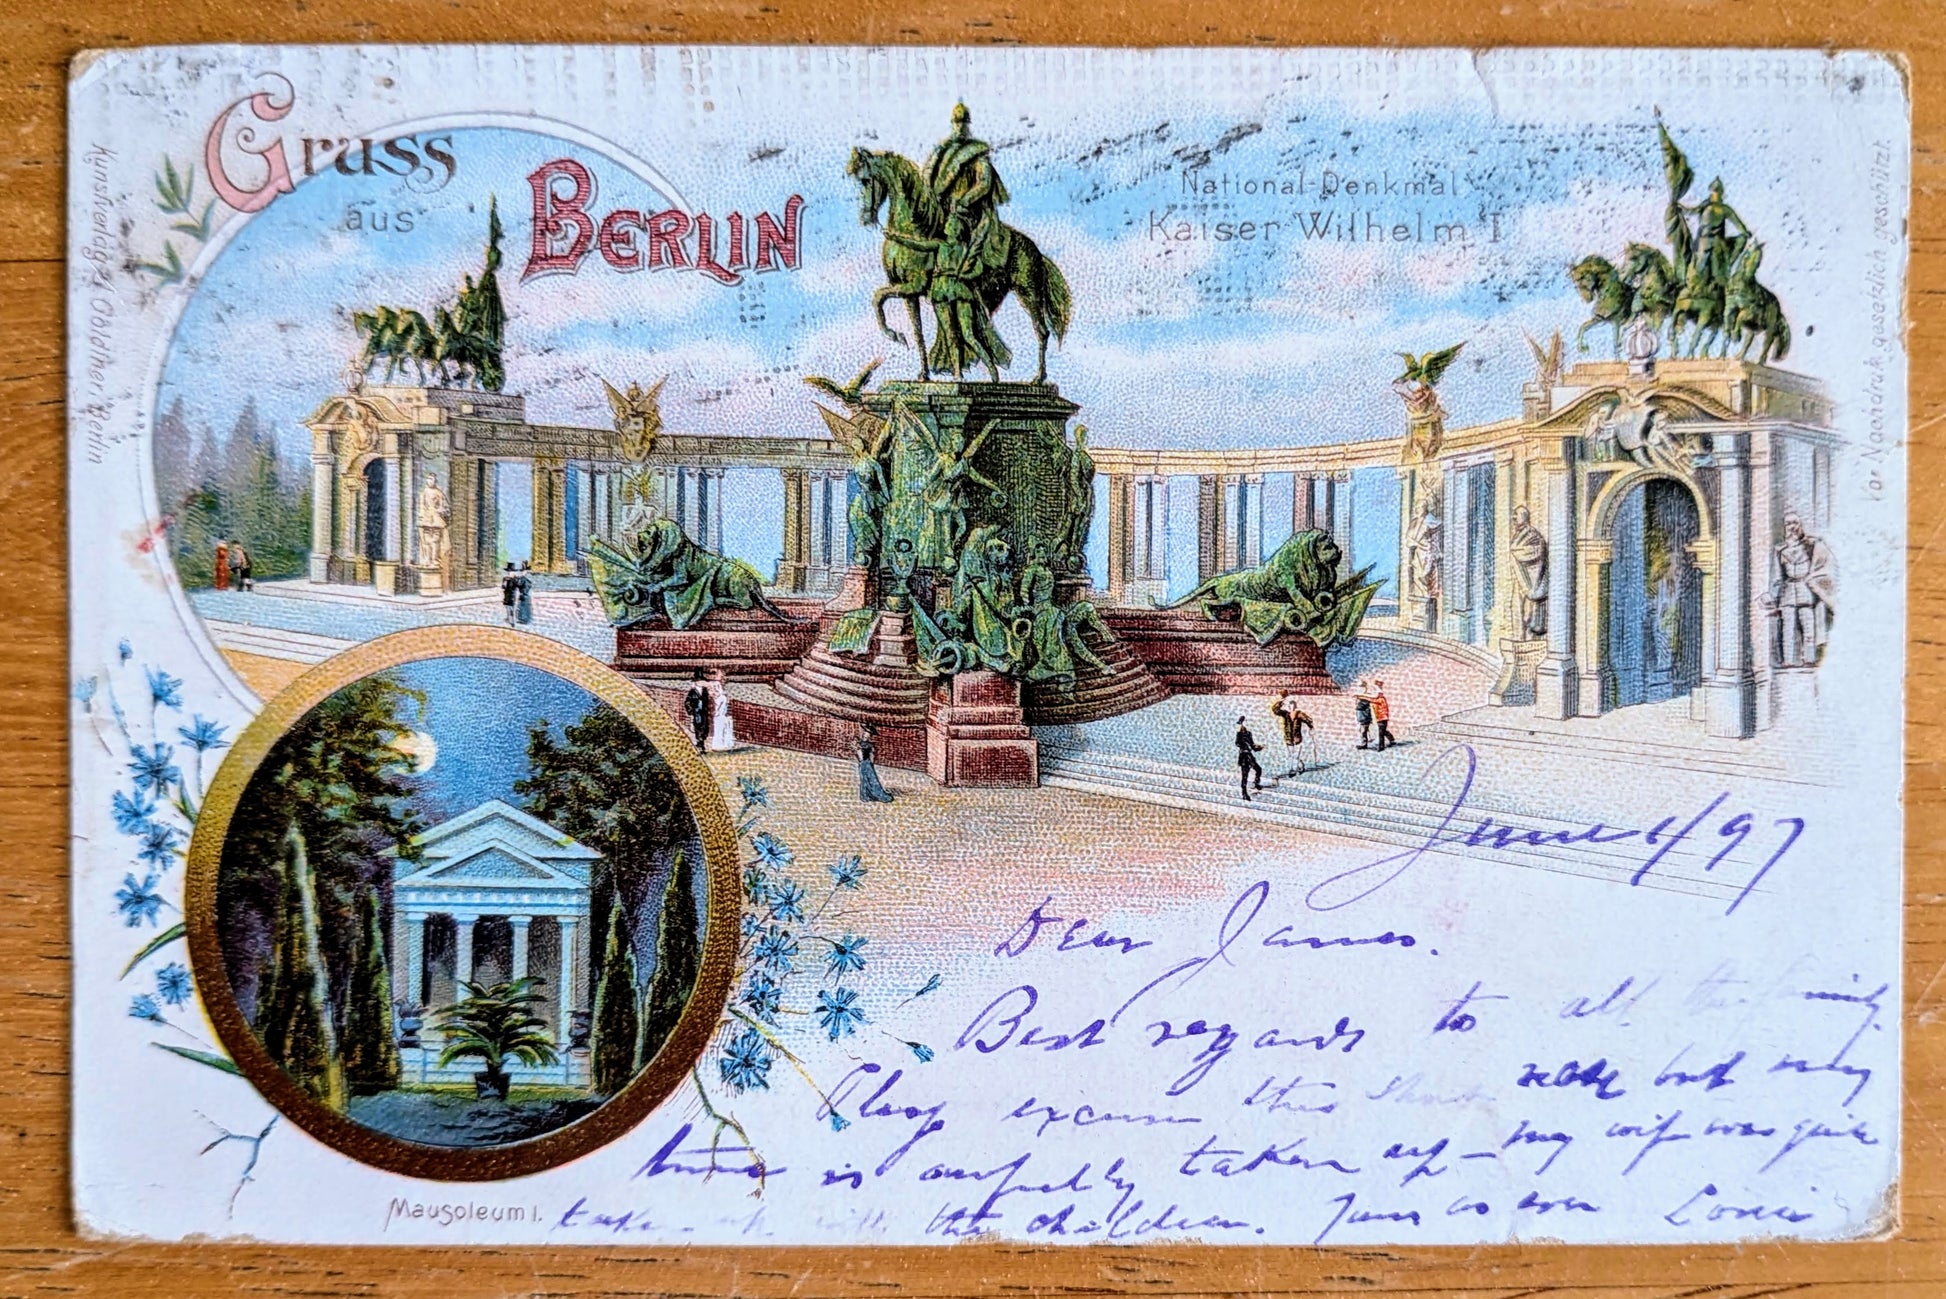 Gruss
aus
BERLIN
National-Denkmal
Kaiser Wilhelm I
Kunstverlag J. Goldiner, Berlin
Vor Nachdruk gesetzlich geschützt.
Mausoleum I.
June 1/97
Dear James.
Best regards to all the family.
Please excuse this short note but my
time is awfully taken up - my wife was quite
taken up with the children. Yours as ever Louis